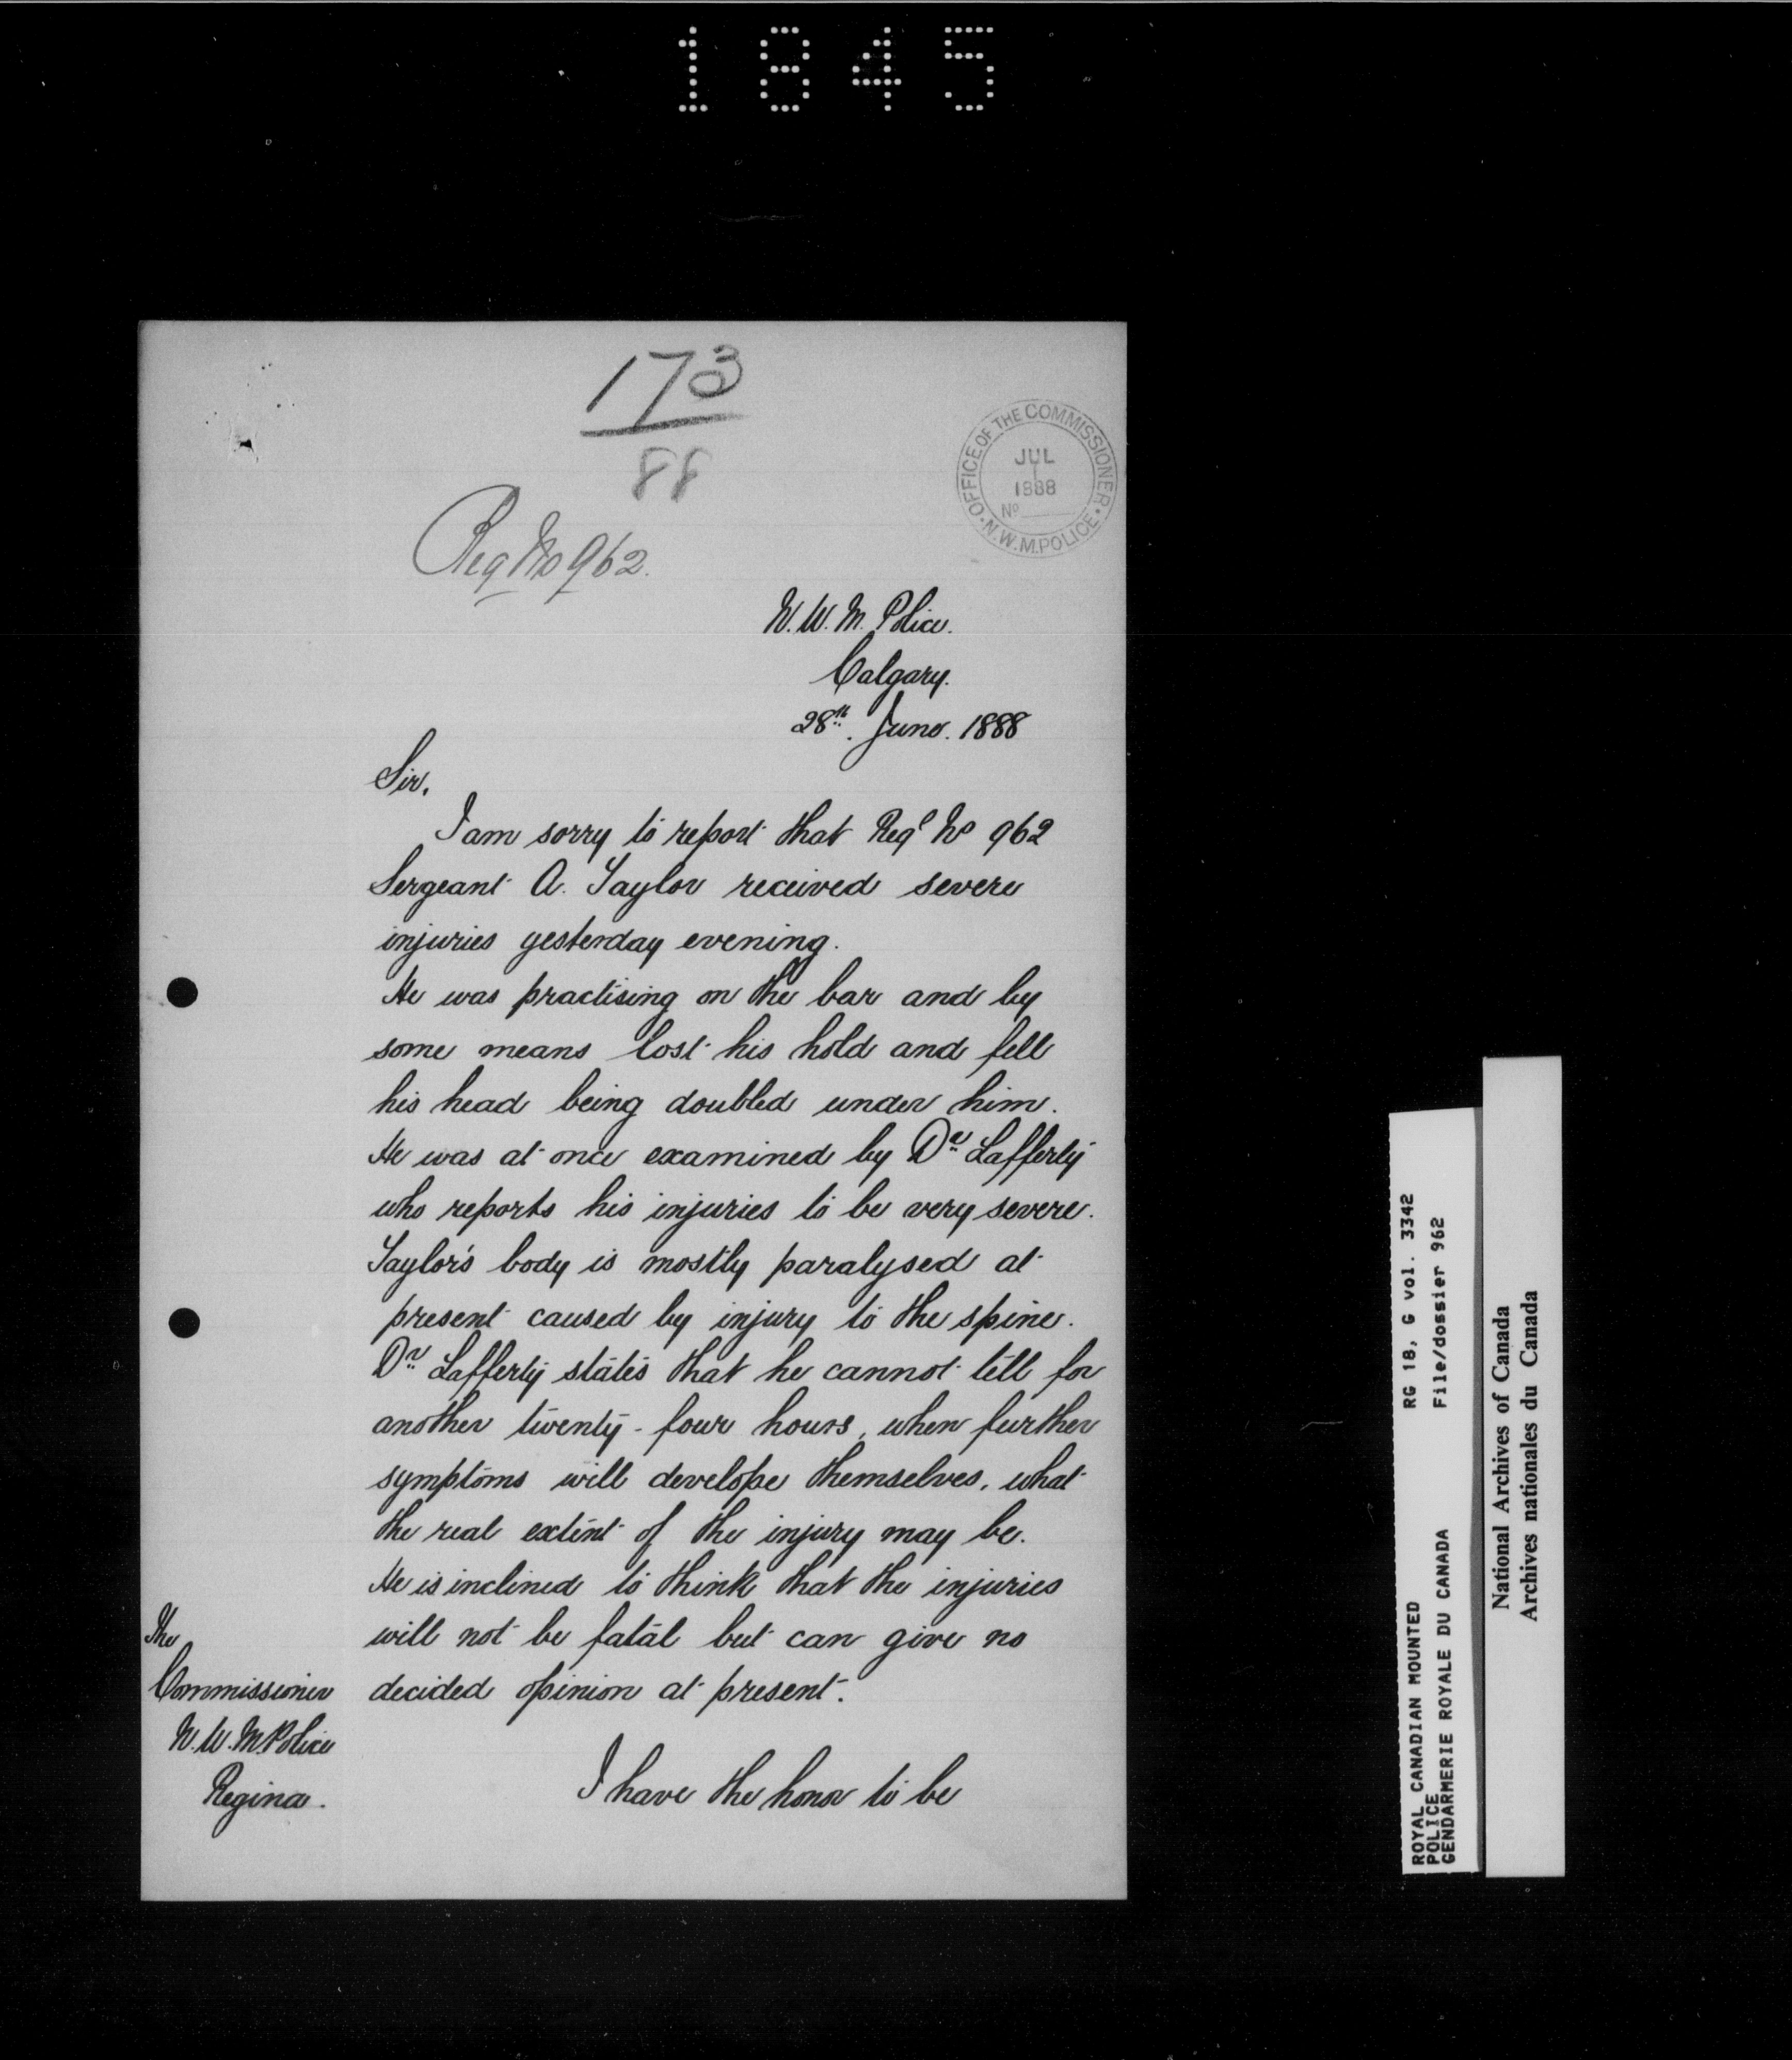 1845
173
88
OFFICE OF THE COMMISSIONER
JUL
1
1888
No
N.W.M. POLICE
Reg No 962.
N.W.M. Police.
Calgary.
28th. June. 1888
Sir,
I am sorry to report that Regl No 962
Sergeant A. Taylor received severe
injuries yesterday evening.
He was practising on the bar and by
some means lost his hold and fell
his head being doubled under him.
He was at once examined by Dr Lafferty
who reports his injuries to be very severe.
Taylor's body is mostly paralysed at
present caused by injury to the spine.
Dr Lafferty states that he cannot tell for
another twenty-four hours, when further
symptoms will develope themselves, what
the real extent of the injury may be.
He is inclined to think that the injuries
will not be fatal but can give no
decided opinion at present.
The
Commissioner
N.W.M. Police
Regina.
I have the honor to be
ROYAL CANADIAN MOUNTED
POLICE
GENDARMERIE ROYALE DU CANADA
RG 18, G vol. 3342
File/dossier 962
National Archives of Canada
Archives nationales du Canada